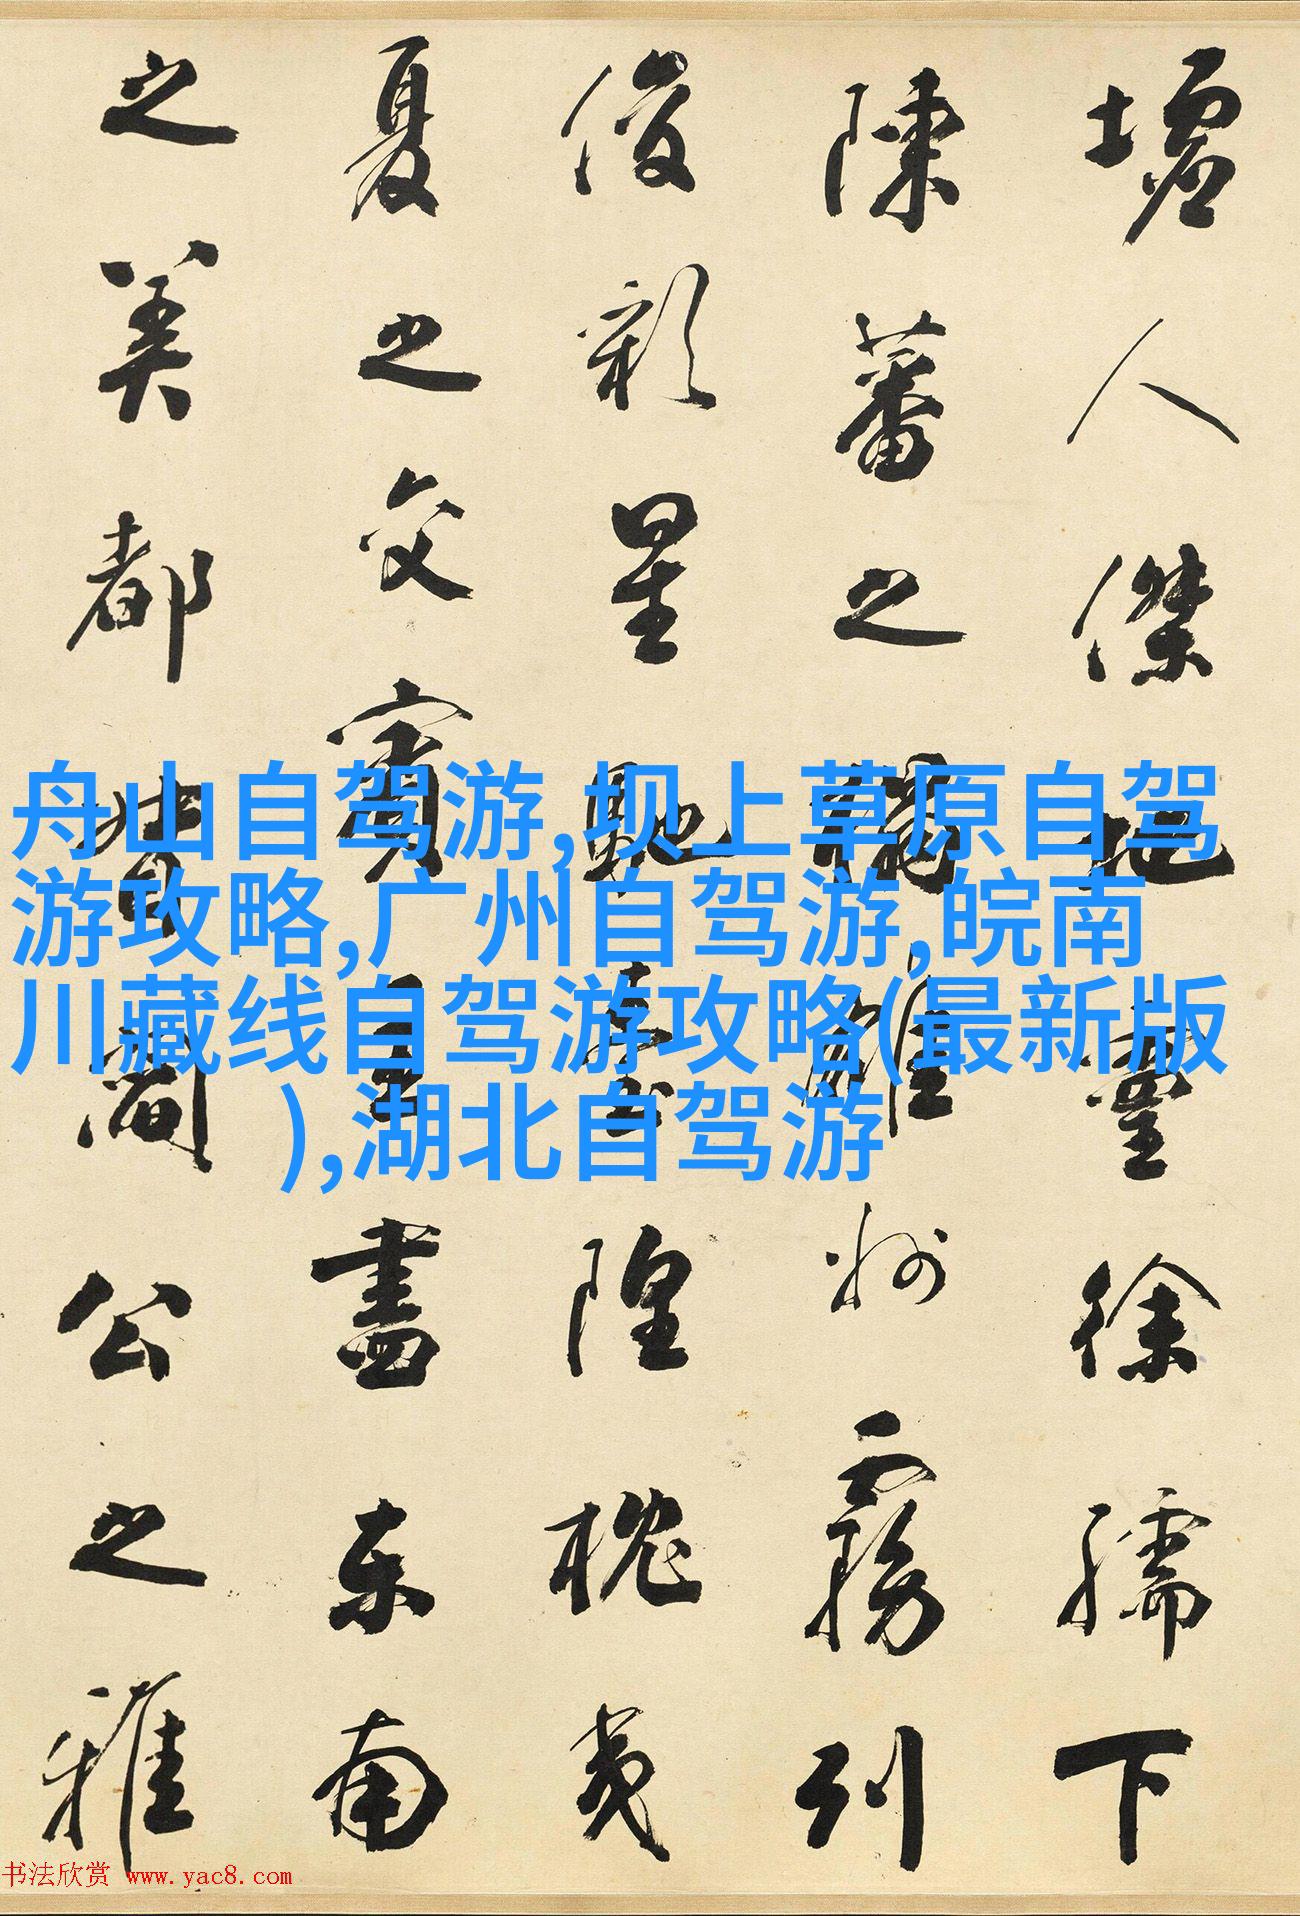 墟人傑地靈徐孺下
陳蕃之榻雄州霧列
俊彩星馳臺隍枕夷
夏之交賓主盡東南
之美都督閻公之雅
舟山自驾游,坝上草原自驾
游攻略,广州自驾游,皖南
川藏线自驾游攻略(最新版
),湖北自驾游
书法欣赏 www.yac8.com